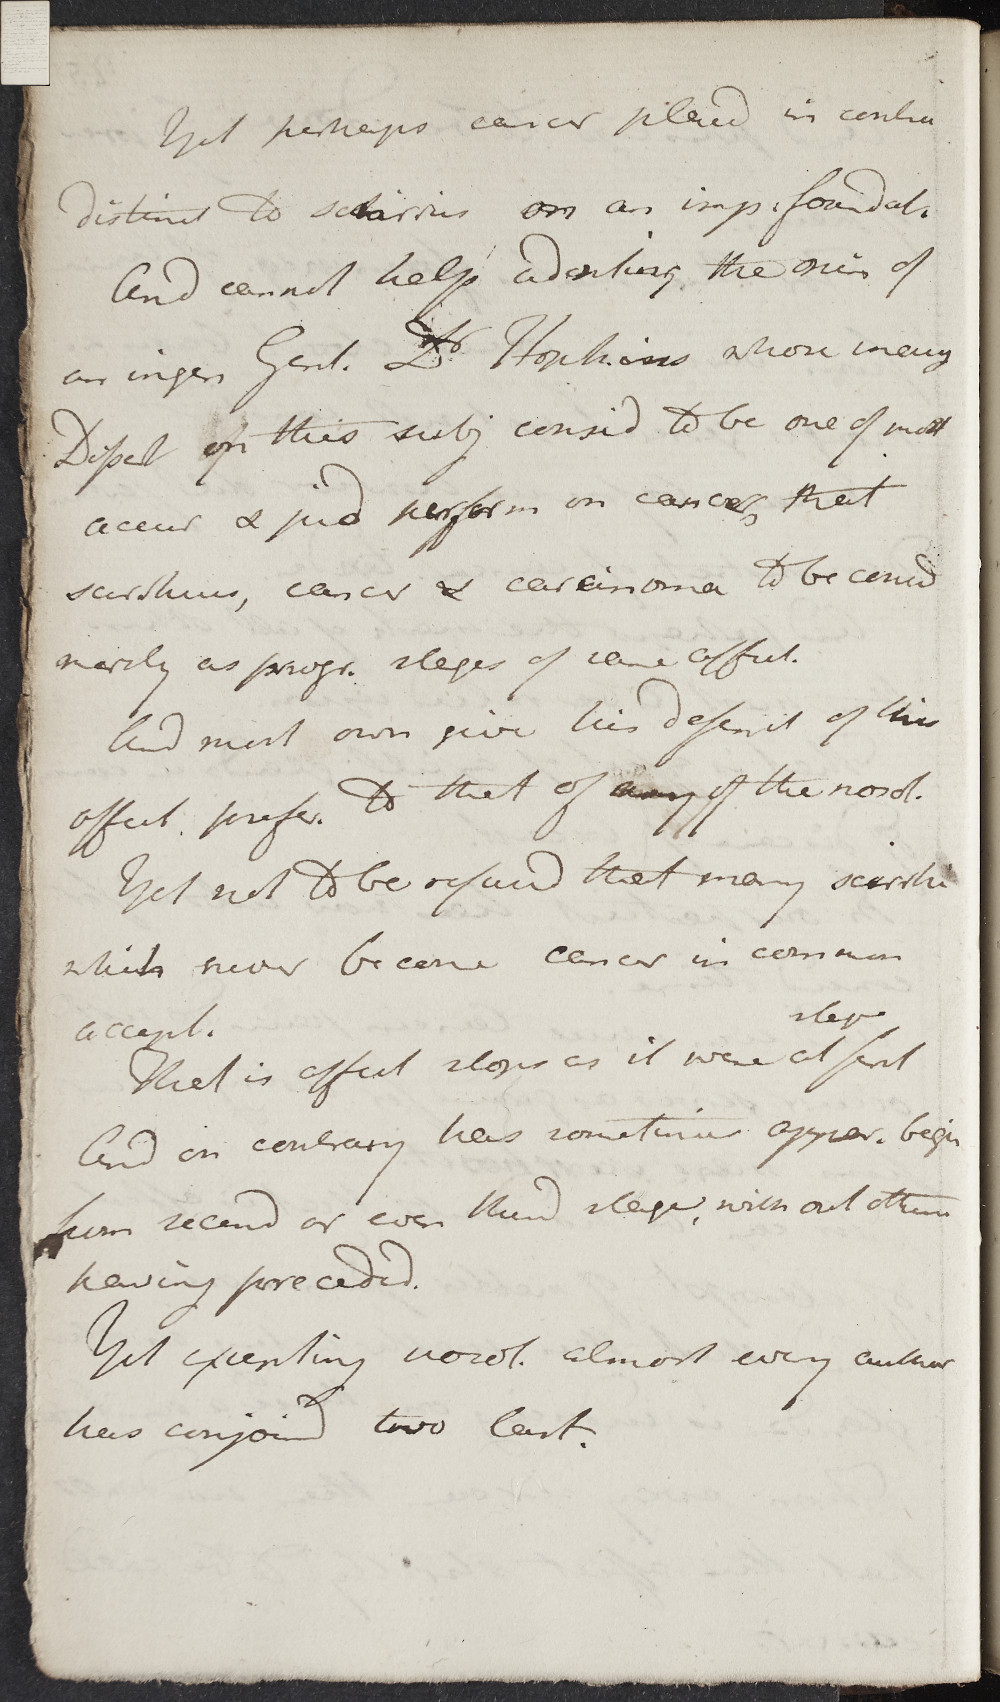 Yet perhaps cancer placed in contra
distinct to scirrus on an imp. foundat.
And cannot help adopting the opin of
an ingen Gent. Dr Hopkins whose inaug
Dissert on this subj consid to be one of most
accur & jud perform on cancer, that
scirrhus, cancer & carcinoma to be consid
merely as progr. stages of same affect.
And must own give his descript of this
affect. prefer. to that of any of the nosol.
Yet not to be refused that many scirrhi
which never become cancer in common
accept.
stage
That is affect stops as it were at first
And on contrary has sometimes appear. begin
from second or even third stage, without others
having preceded.
Yet excepting nosol. almost every author
has conjoined two last.